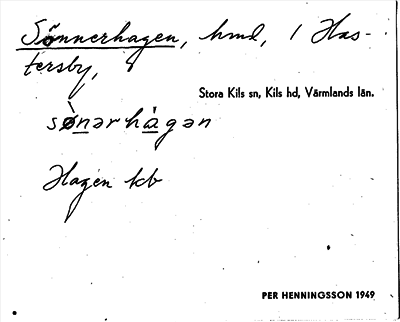 Sönnerhagen, hmd, 1 Has-
tersby,
Stora Kils sn, Kils hd, Värmlands län.
sø̀nərhagən
Hagen kb
PER HENNINGSSON 1949